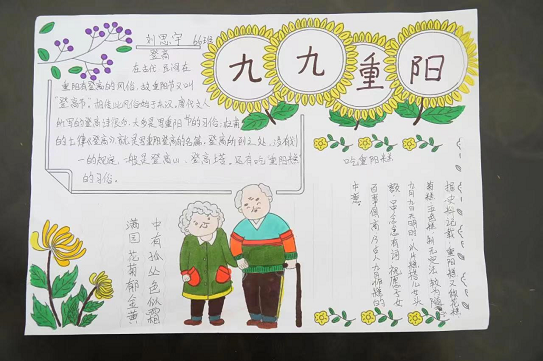 刘思宇 66班
九九重阳
登高
在古代,民间在
重阳有登高的风俗,故重阳节又叫
“登高节”。相传此风俗始于东汉,唐代文人
所写的登高诗很多,大多是写重阳节的习俗;杜甫
的七律《登高》就是写重阳登高的名篇。登高所到之处,没有划
一的规定,一般是登高山、登高塔。还有吃“重阳糕
的习俗。
吃重阳糕
据史料记载,重阳糕又称花糕、
菊糕、五色糕,制无定法,较为随
九月九日天明时,以片糕搭儿女头
额,口中念念有词,祝愿子女
百事俱高,乃古人九月作糕的
本意。
满园花菊郁金黄
中有孤丛色似霜